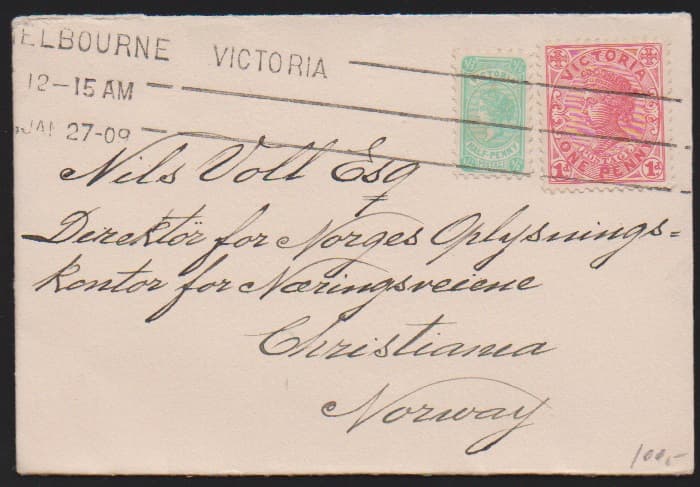 MELBOURNE VICTORIA
12-15 AM
JAN 27-09
VICTORIA
HALF-PENNY
VICTORIA
POSTAGE
ONE PENNY
1D 1D
Nils Voll Esq
Direktör for Norges Oplysnings=
kontor for Næringsveiene
Christiania
Norway
100,-